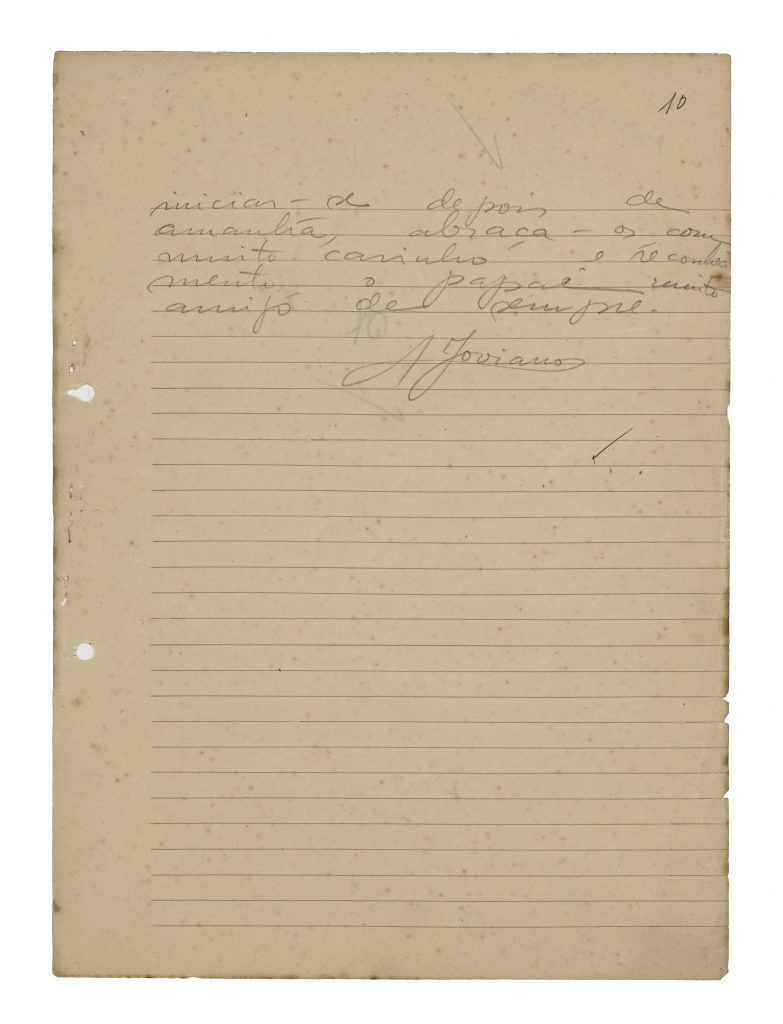 10
iniciar-se depois de
amanhã, abraça-os com
muito carinho e reconheci
mento o papai muito
amigo de sempre.
A Joviano